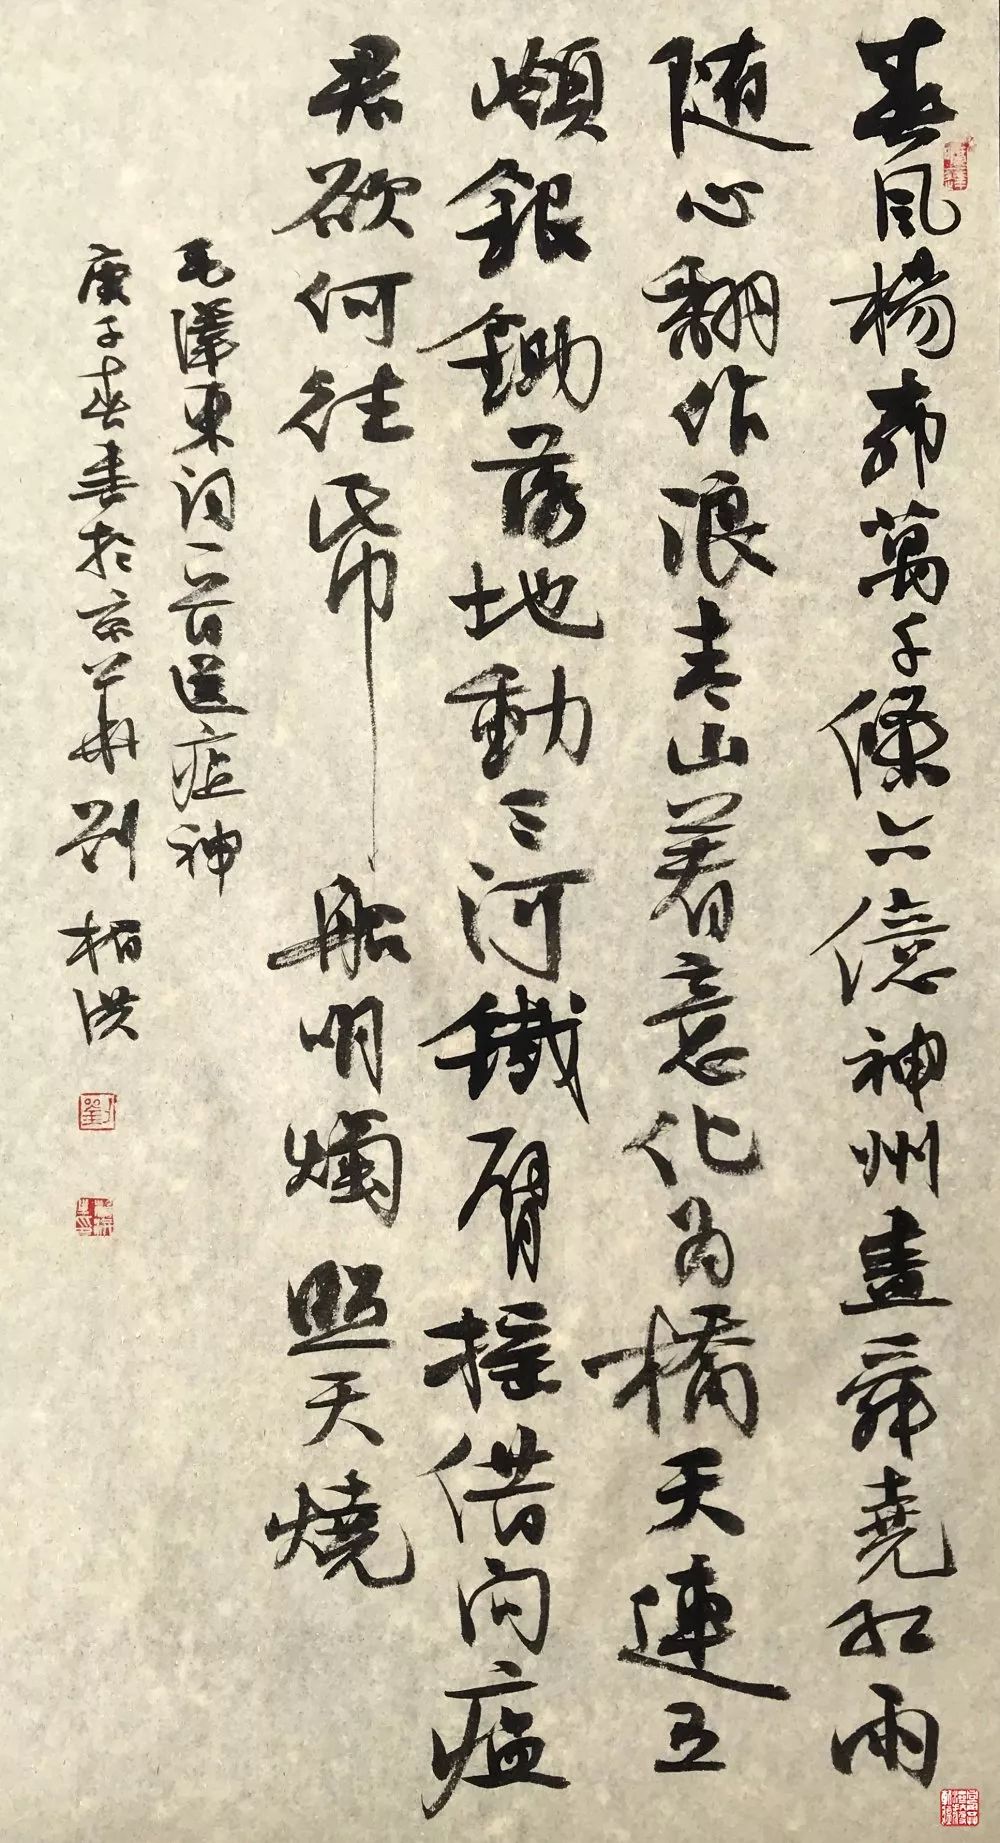 春風楊柳萬千條六億神州盡舜堯紅雨
随心翻作浪青山着意化为橋天連五
嶺銀鋤落地動三河鐵臂摇借问瘟
君欲何往帋船明燭照天燒
毛澤東词一首送瘟神
庚子春書於京華劉柏洪